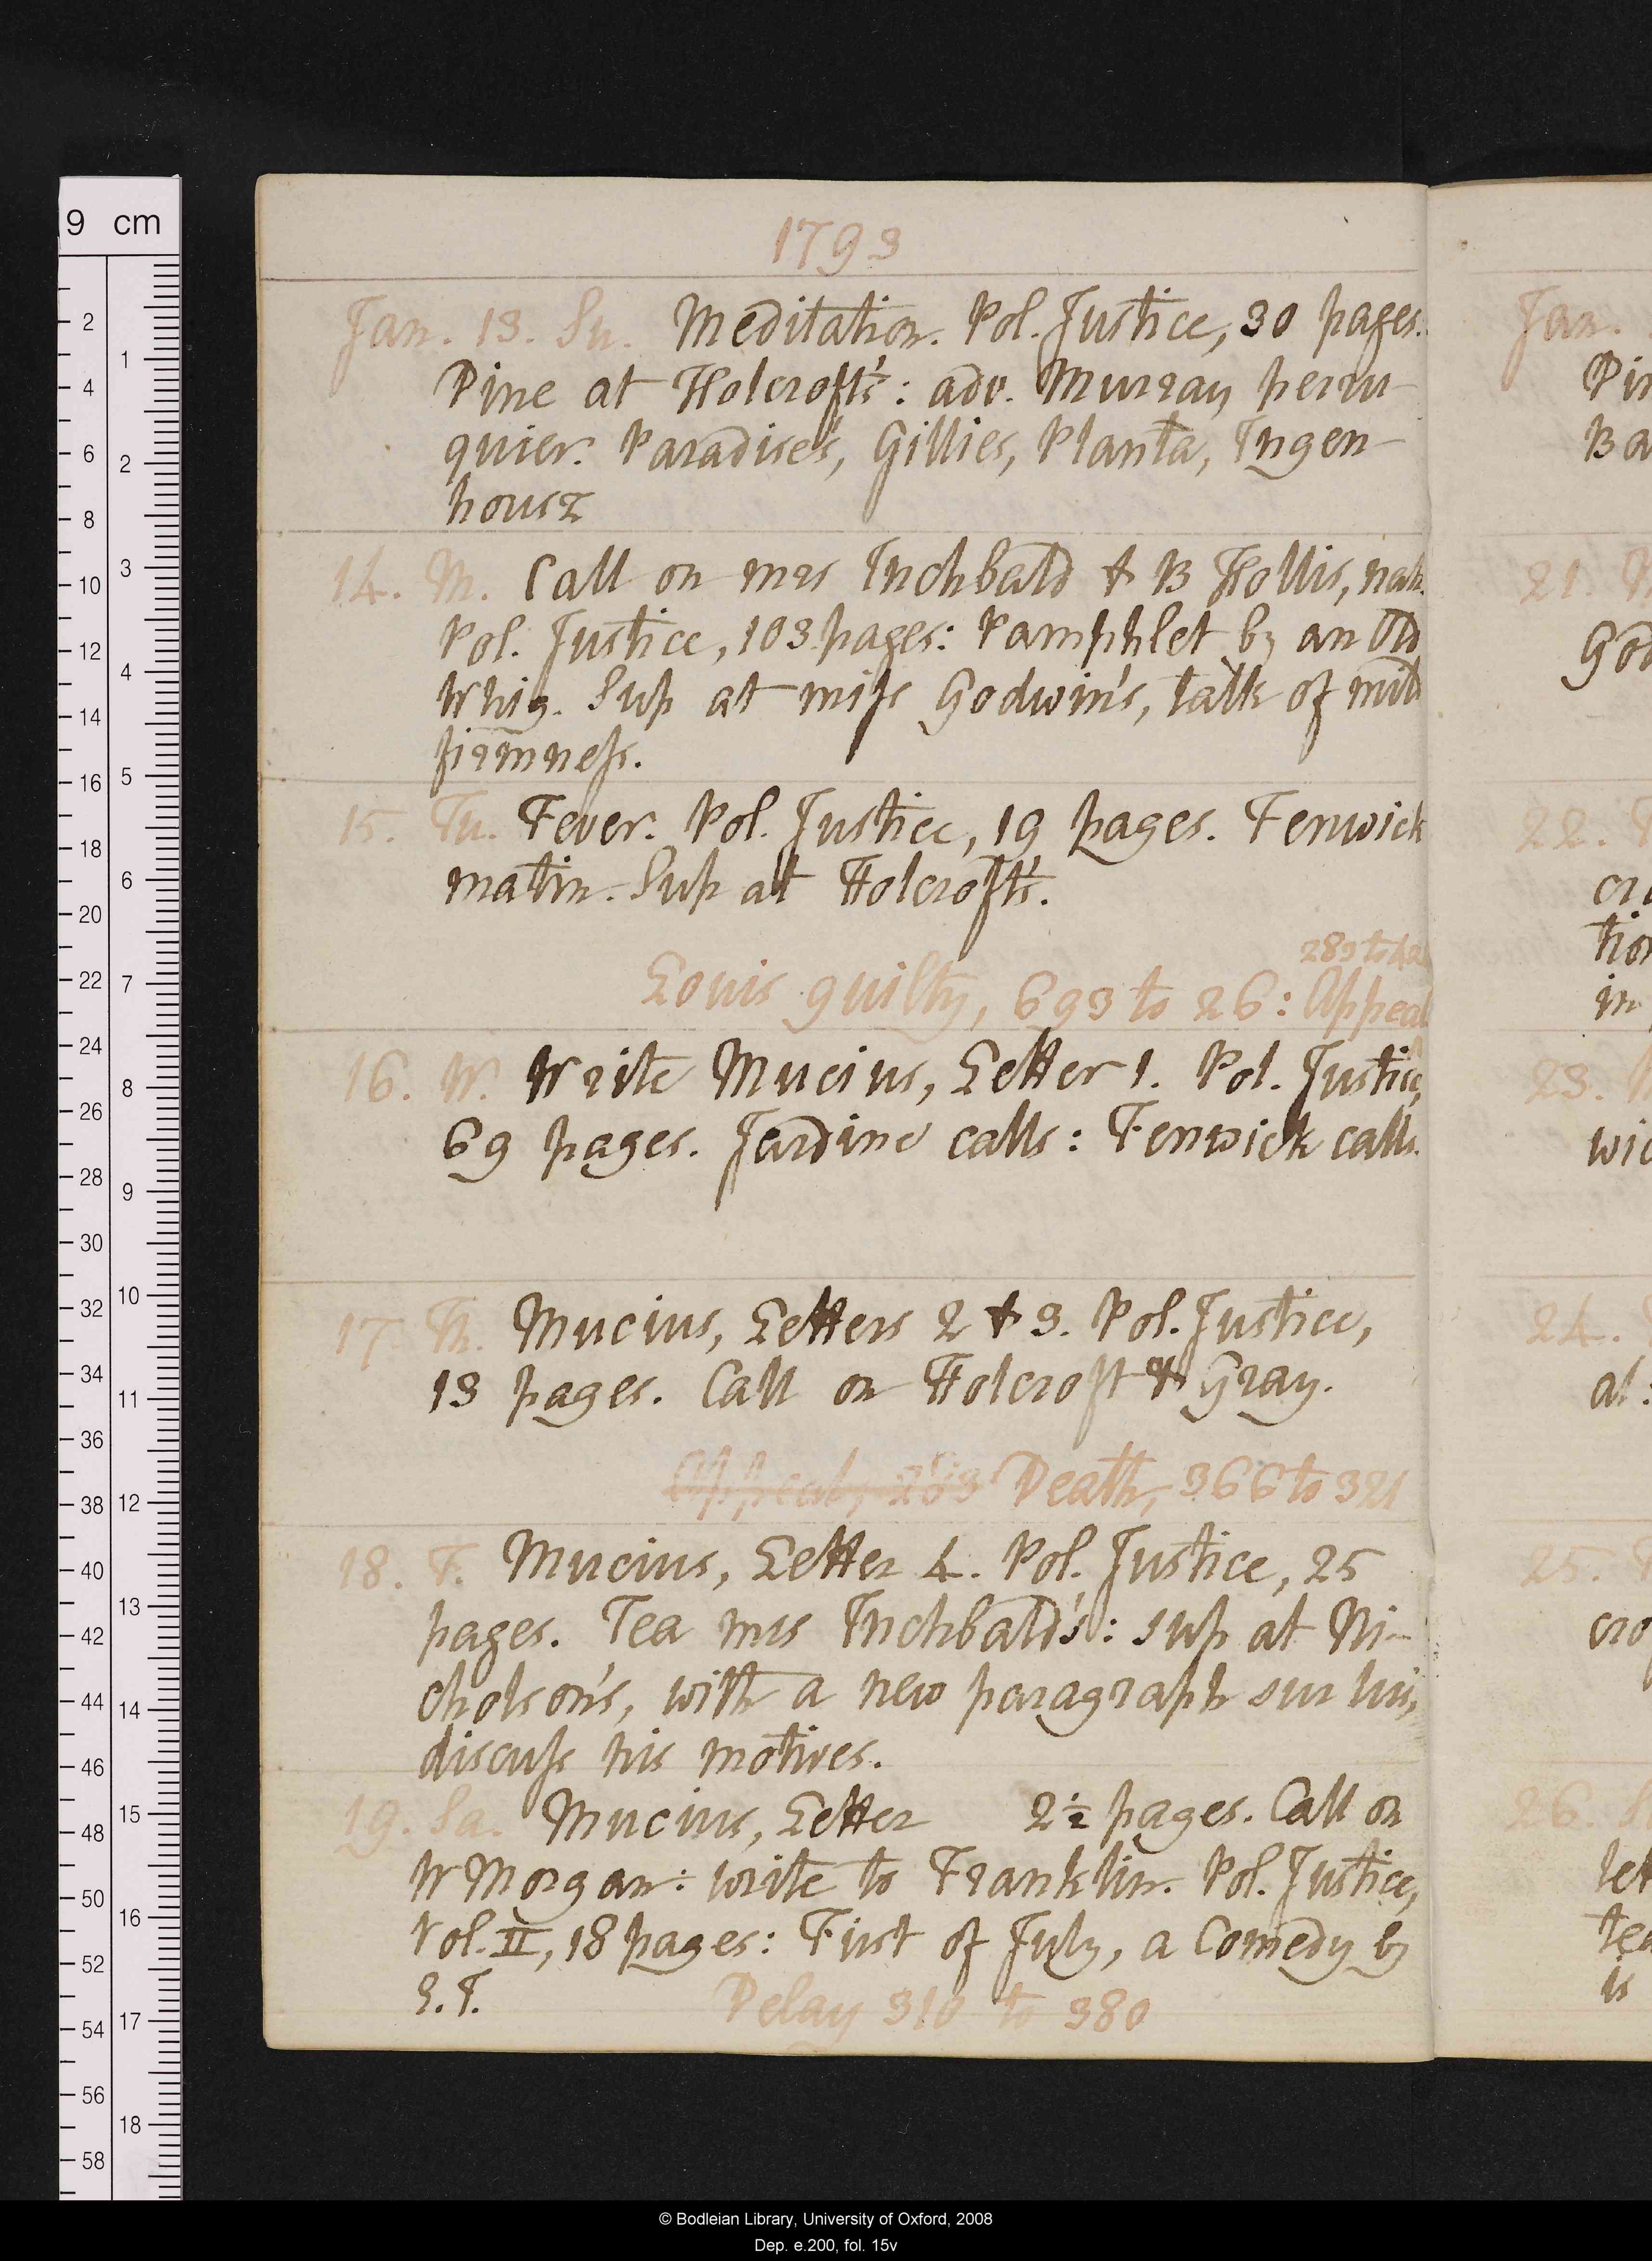 1793
Jan. 13. Su. Meditation. Pol. Justice, 30 pages.
Dine at Holcroft's: adv. Murray perru-
quier. Paradise's, Gillies, Planta, Ingen-
housz
14. M. Call on mrs Inchbald & B Hollis, nah.
Pol. Justice, 103 pages: Pamphlet by an Old
Whig. Sup at miss Godwin's, talk of mild
firmness.
15. Tu. Fever. Pol. Justice, 19 pages. Fenwick
matin. Sup at Holcroft's.
283 to 424
Louis guilty, 693 to 26: Appeal
16. W. Write Mucius, Letter 1. Pol. Justice,
69 pages. Jardine calls: Fenwick calls.
17. Th. Mucius, Letters 2 & 3. Pol. Justice,
13 pages. Call on Holcroft & Gray.
Appeal, 283 Death, 366 to 321
18. F. Mucius, Letter 4. Pol. Justice, 25
pages. Tea mrs Inchbald's: sup at Ni-
cholson's, with a new paragraph sur lui,
discuss his motives.
19. Sa. Mucius, Letter 2½ pages. Call on
W Morgan: write to Franklin. Pol. Justice,
Vol. II, 18 pages: First of July, a Comedy by
Delay 310 to 380
Jan.
21.
God
22.
23.
24.
25.
26.
9 cm
2
4
6
8
10
12
14
16
18
20
22
24
26
28
30
32
34
36
38
40
42
44
46
48
50
52
54
56
58
1
2
3
4
5
6
7
8
9
10
11
12
13
14
15
16
17
18
© Bodleian Library, University of Oxford, 2008
Dep. e.200, fol. 15v